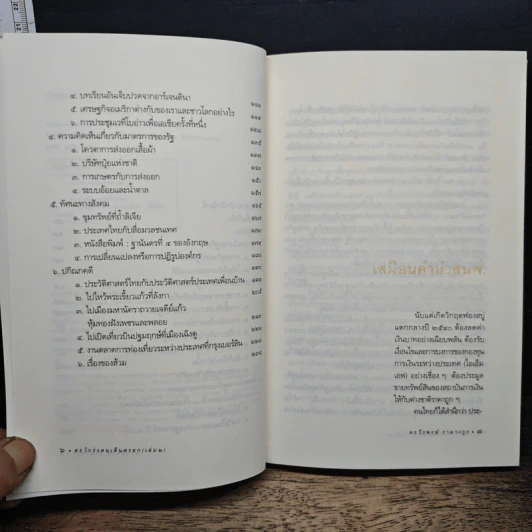 ๔. บทเรียนอันเจ็บปวดจากอาร์เจนตินา
๕. เศรษฐกิจอเมริกาต่างกับของเราและชาวโลกอย่างไร
๖. การประชุมเวทีโบอ่าวเพื่อเอเชียครั้งที่หนึ่ง
๔. ความคิดเห็นเกี่ยวกับมาตรการของรัฐ
๑. โควตาการส่งออกเสื้อผ้า
๒. บริษัทปุ๋ยแห่งชาติ
๓. การเกษตรกับการส่งออก
๔. ระบบอ้อยและน้ำตาล
๕. ทัศนะทางสังคม
๑. ขุมทรัพย์ที่ถ้ำลิเจีย
๒. ประเทศไทยกับสื่อมวลชนเทศ
๓. หนังสือพิมพ์ : ฐานันดรที่ ๔ ของอังกฤษ
๔. การเปลี่ยนแปลงหรือการปฏิรูปองค์กร
๖. ปกิณกคดี
๑. ประวัติศาสตร์ไทยกับประวัติศาสตร์ประเทศเพื่อนบ้าน
๒. ไปไหว้พระเขี้ยวแก้วที่ลังกา
๓. ไปเมืองมหานัครา
หุ้มทองฝังเพชรและพลอย
๔. ไปเปิดเที่ยวบินปฐมฤกษ์ที่เมืองเฉิงตู
๕. งานตลาดการท่องเที่ยวระหว่างประเทศที่กรุงเบอร์ลิน
๖. เรื่องของส้วม
๖ •
เสมือนคำนำสนพ.
นับแต่เกิดวิกฤตฟองสบู่
แตกกลางปี ๒๕๔๐ ต้องลดค่า
เงินบาทอย่างเฉียบพลัน ต้องรับ
เงื่อนไขและการบงการของกองทุน
การเงินระหว่างประเทศ (ไอเอ็ม
เอฟ) อย่างเชื่อง ๆ ต้องประมูล
ขายทรัพย์สินของสถาบันการเงิน
ให้กับต่างชาติราคาถูก ๆ
คนไทยก็ได้สำนึกว่า ประ-
ดร.วีรพงษ์ รามางกูร • ๗